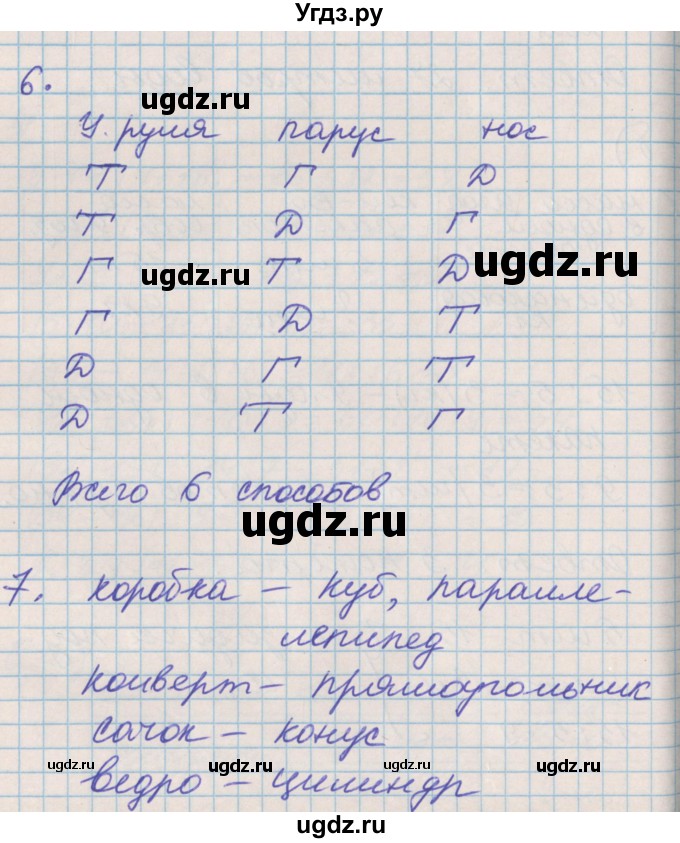 Угдз.ру
6.
ugdz.ru
У руля парус нос
Т Г Д
Т Д Г
ugdz.ru
Г Т Д
ugdz.ru
Г Д Т
Д Г Т
Д Т Г
Всего 6 способов
ugdz.ru
7. коробка – куб, паралле-
лепипед
конверт – прямоугольник
сачок – конус
ugdz.ru ugdz.ru ugdz.ru
ведро – цилиндр
ugdz.ru